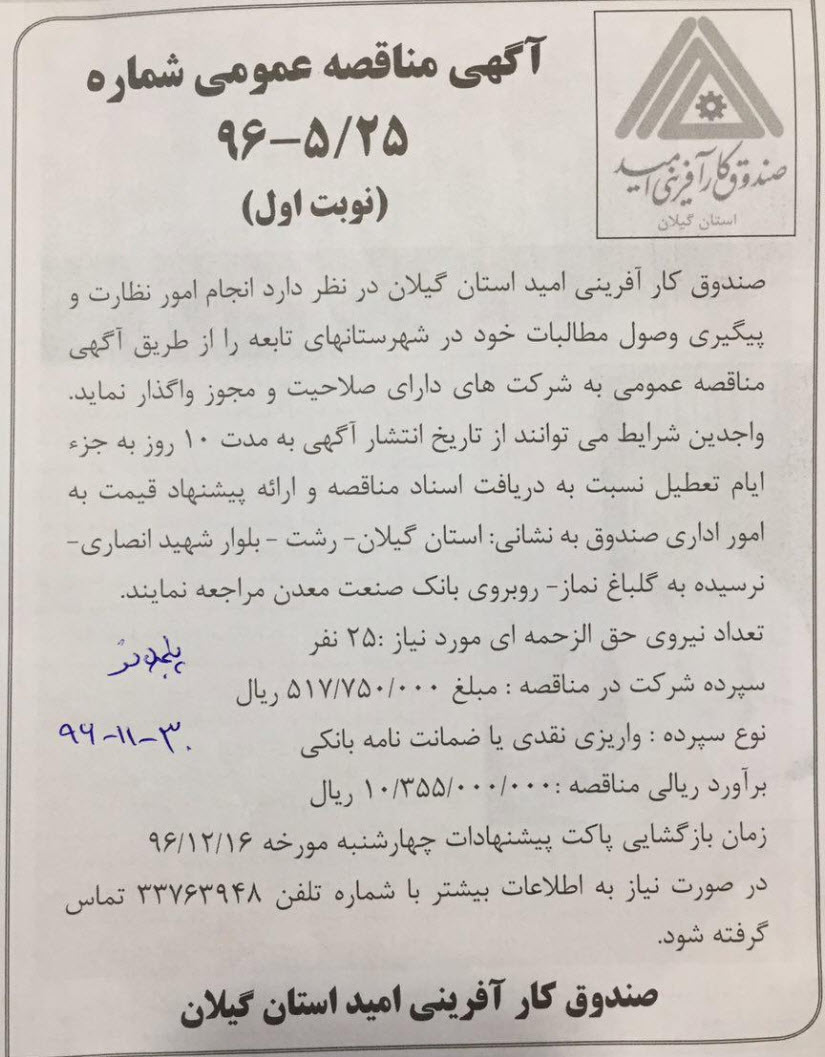 آگهی مناقصه عمومی شماره
۹۶-۵/۲۵
(نوبت اول)
صندوق کارآفرینی امید
استان گیلان
صندوق کار آفرینی امید استان گیلان در نظر دارد انجام امور نظارت و
پیگیری وصول مطالبات خود در شهرستانهای تابعه را از طریق آگهی
مناقصه عمومی به شرکت های دارای صلاحیت و مجوز واگذار نماید.
واجدین شرایط می توانند از تاریخ انتشار آگهی به مدت ۱۰ روز به جزء
ایام تعطیل نسبت به دریافت اسناد مناقصه و ارائه پیشنهاد قیمت به
امور اداری صندوق به نشانی: استان گیلان- رشت - بلوار شهید انصاری-
نرسیده به گلباغ نماز- روبروی بانک صنعت معدن مراجعه نمایند.
تعداد نیروی حق الزحمه ای مورد نیاز :۲۵ نفر
سپرده شرکت در مناقصه : مبلغ ۵۱۷/۷۵۰/۰۰۰ ریال
نوع سپرده : واریزی نقدی یا ضمانت نامه بانکی
۹۶-۱۱-۳۰
برآورد ریالی مناقصه :۱۰/۳۵۵/۰۰۰/۰۰۰ ریال
زمان بازگشایی پاکت پیشنهادات چهارشنبه مورخه ۹۶/۱۲/۱۶
در صورت نیاز به اطلاعات بیشتر با شماره تلفن ۳۳۷۶۳۹۴۸ تماس
گرفته شود.
صندوق کار آفرینی امید استان گیلان